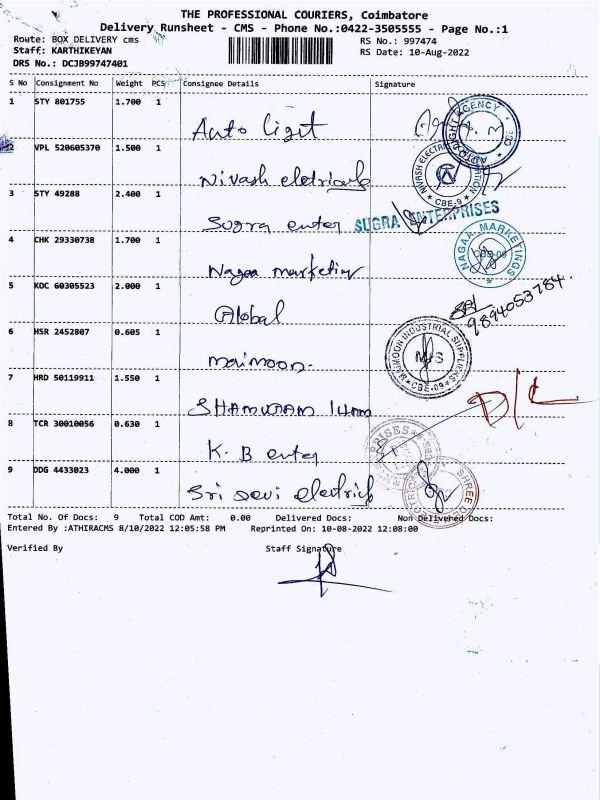 THE PROFESSIONAL COURIERS, Coimbatore
Delivery Runsheet - CMS - Phone No.:0422-3505555 - Page No.:1
Route: BOX DELIVERY cms RS No.: 997474
Staff: KARTHIKEYAN RS Date: 10-Aug-2022
DRS No.: DCJB99747401
S No Consignment No Weight PCS Consignee Details Signature
1 STY 801755 1.700 1
Auto light
AUTO LIGHT AGENCY
2 VPL 520605370 1.500 1
Nivash eletricals
NIVASH ELECTRICAL CBE-9
3 STY 49288 2.400 1
Sugra enter SUGRA ENTERPRISES
4 CHK 29330738 1.700 1
Nagaa marketin
NAGAA MARKETINGS CBE-09
5 KOC 60305523 2.000 1
Global
9894053784.
6 HSR 2452807 0.605 1
maimoon.
MAIMOON INDUSTRIAL SUPPLIERS M/S CBE-09
7 HRD 50119911 1.550 1
D/L
8 TCR 30010056 0.630 1
K. B enter
9 DDG 4433023 4.000 1
Sri devi electrich
Total No. Of Docs: 9 Total COD Amt: 0.00 Delivered Docs: Non Delivered Docs:
Entered By :ATHIRACMS 8/10/2022 12:05:58 PM Reprinted On: 10-08-2022 12:08:00
Verified By Staff Signature